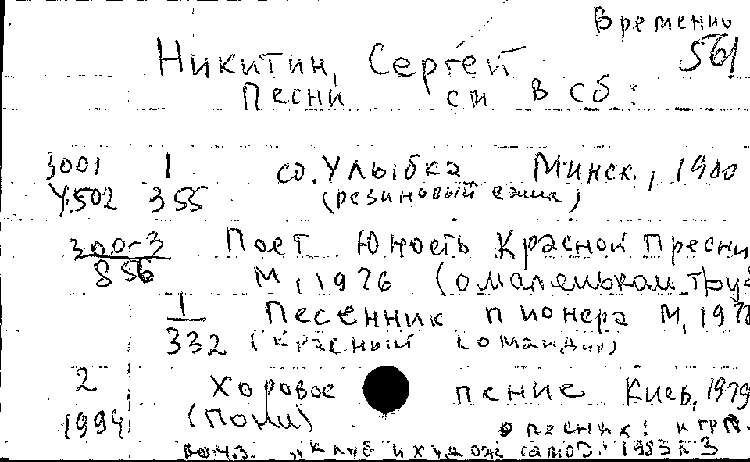 Временно
Никитин, Сергей 561
Песни см в сб:
3001 1 сб. Улыбка Минск, 1980
У.502 355 (резиновый ежик)
300-3 Поет Юность Красной Пресни
856 М, 1976 (о маленьком тру
1 Песенник пионера М, 197
332 (Красный командир)
2 Хоровое пение Киев, 1979
1994 (Пони) о песнях:
1983 №3